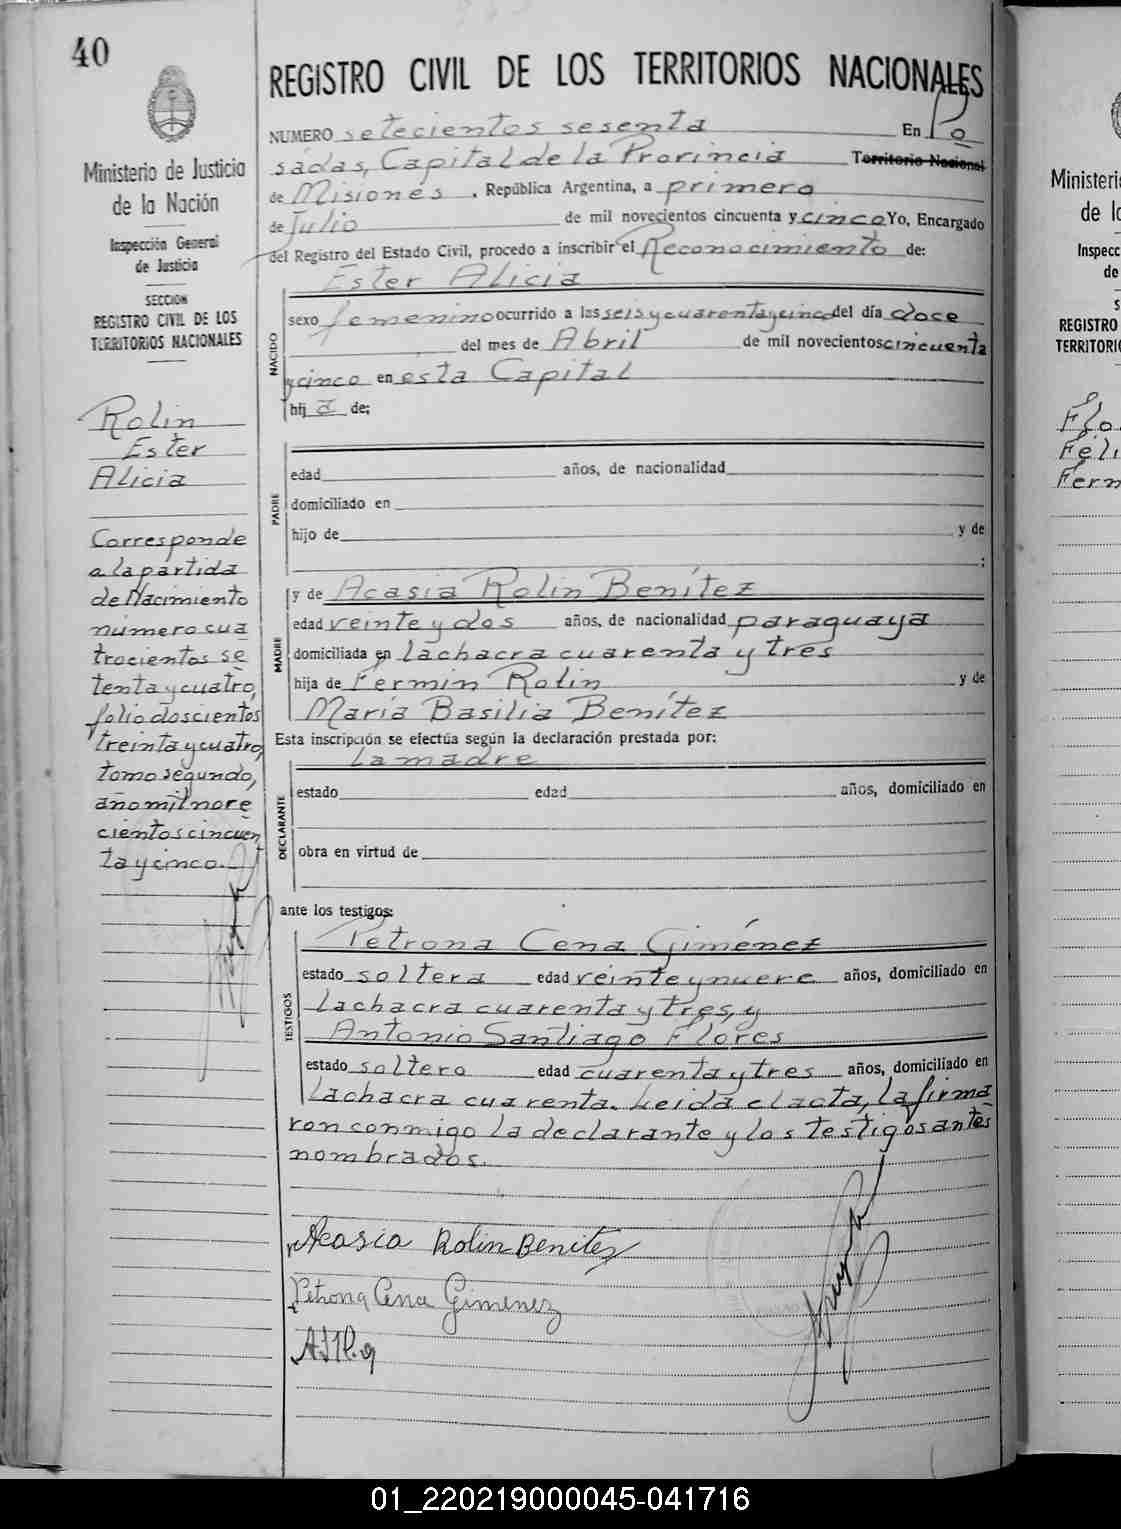 40
Ministerio de Justicia
de la Nación
Inspección General
de Justicia
SECCION
REGISTRO CIVIL DE LOS
TERRITORIOS NACIONALES
Rolin
Ester
Alicia
Corresponde
a la partida
de Nacimiento
número cua
trocientos se
tenta y cuatro,
folio doscientos
treinta y cuatro,
tomo segundo,
año mil nove
cientos cincuen
ta y cinco.
REGISTRO CIVIL DE LOS TERRITORIOS NACIONALES
NUMERO setecientos sesenta En Po
sadas, Capital de la Provincia Territorio Nacional
de Misiones, República Argentina, a primero
de Julio de mil novecientos cincuenta y cinco Yo, Encargado
del Registro del Estado Civil, procedo a inscribir el Reconocimiento de:
Ester Alicia
NACIDO
sexo femenino ocurrido a las seis y cuarenta y cinco del día doce
del mes de Abril de mil novecientos cincuenta
y cinco en esta Capital
hij a de;
PADRE
edad años, de nacionalidad
domiciliado en
hijo de y de
;
MADRE
y de Acasia Rolin Benítez
edad veinte y dos años, de nacionalidad paraguaya
domiciliada en la chacra cuarenta y tres
hija de Fermín Rolin y de
María Basilia Benítez
Esta inscripción se efectúa según la declaración prestada por:
la madre
DECLARANTE
estado edad años, domiciliado en
obra en virtud de
ante los testigos:
TESTIGOS
Petrona Cena Giménez
estado soltera edad veinte y nueve años, domiciliado en
la chacra cuarenta y tres, y
Antonio Santiago Flores
estado soltero edad cuarenta y tres años, domiciliado en
la chacra cuarenta. Leída el acta, la firma
ron conmigo la declarante y los testigos antes
nombrados.
Acasia Rolin Benitez
Petrona Cena Gimenez
Ministerio
de la
Inspecc
de
S
REGISTRO
TERRITORIO
Flo
Féli
Ferm
01_220219000045-041716